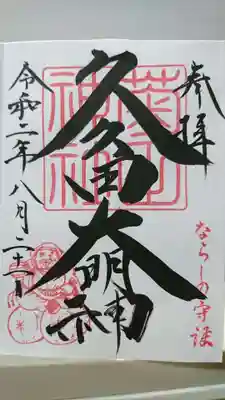 奉拝
ならしの守護
久々田大明神
菊田
神社
令和二年八月二十一日